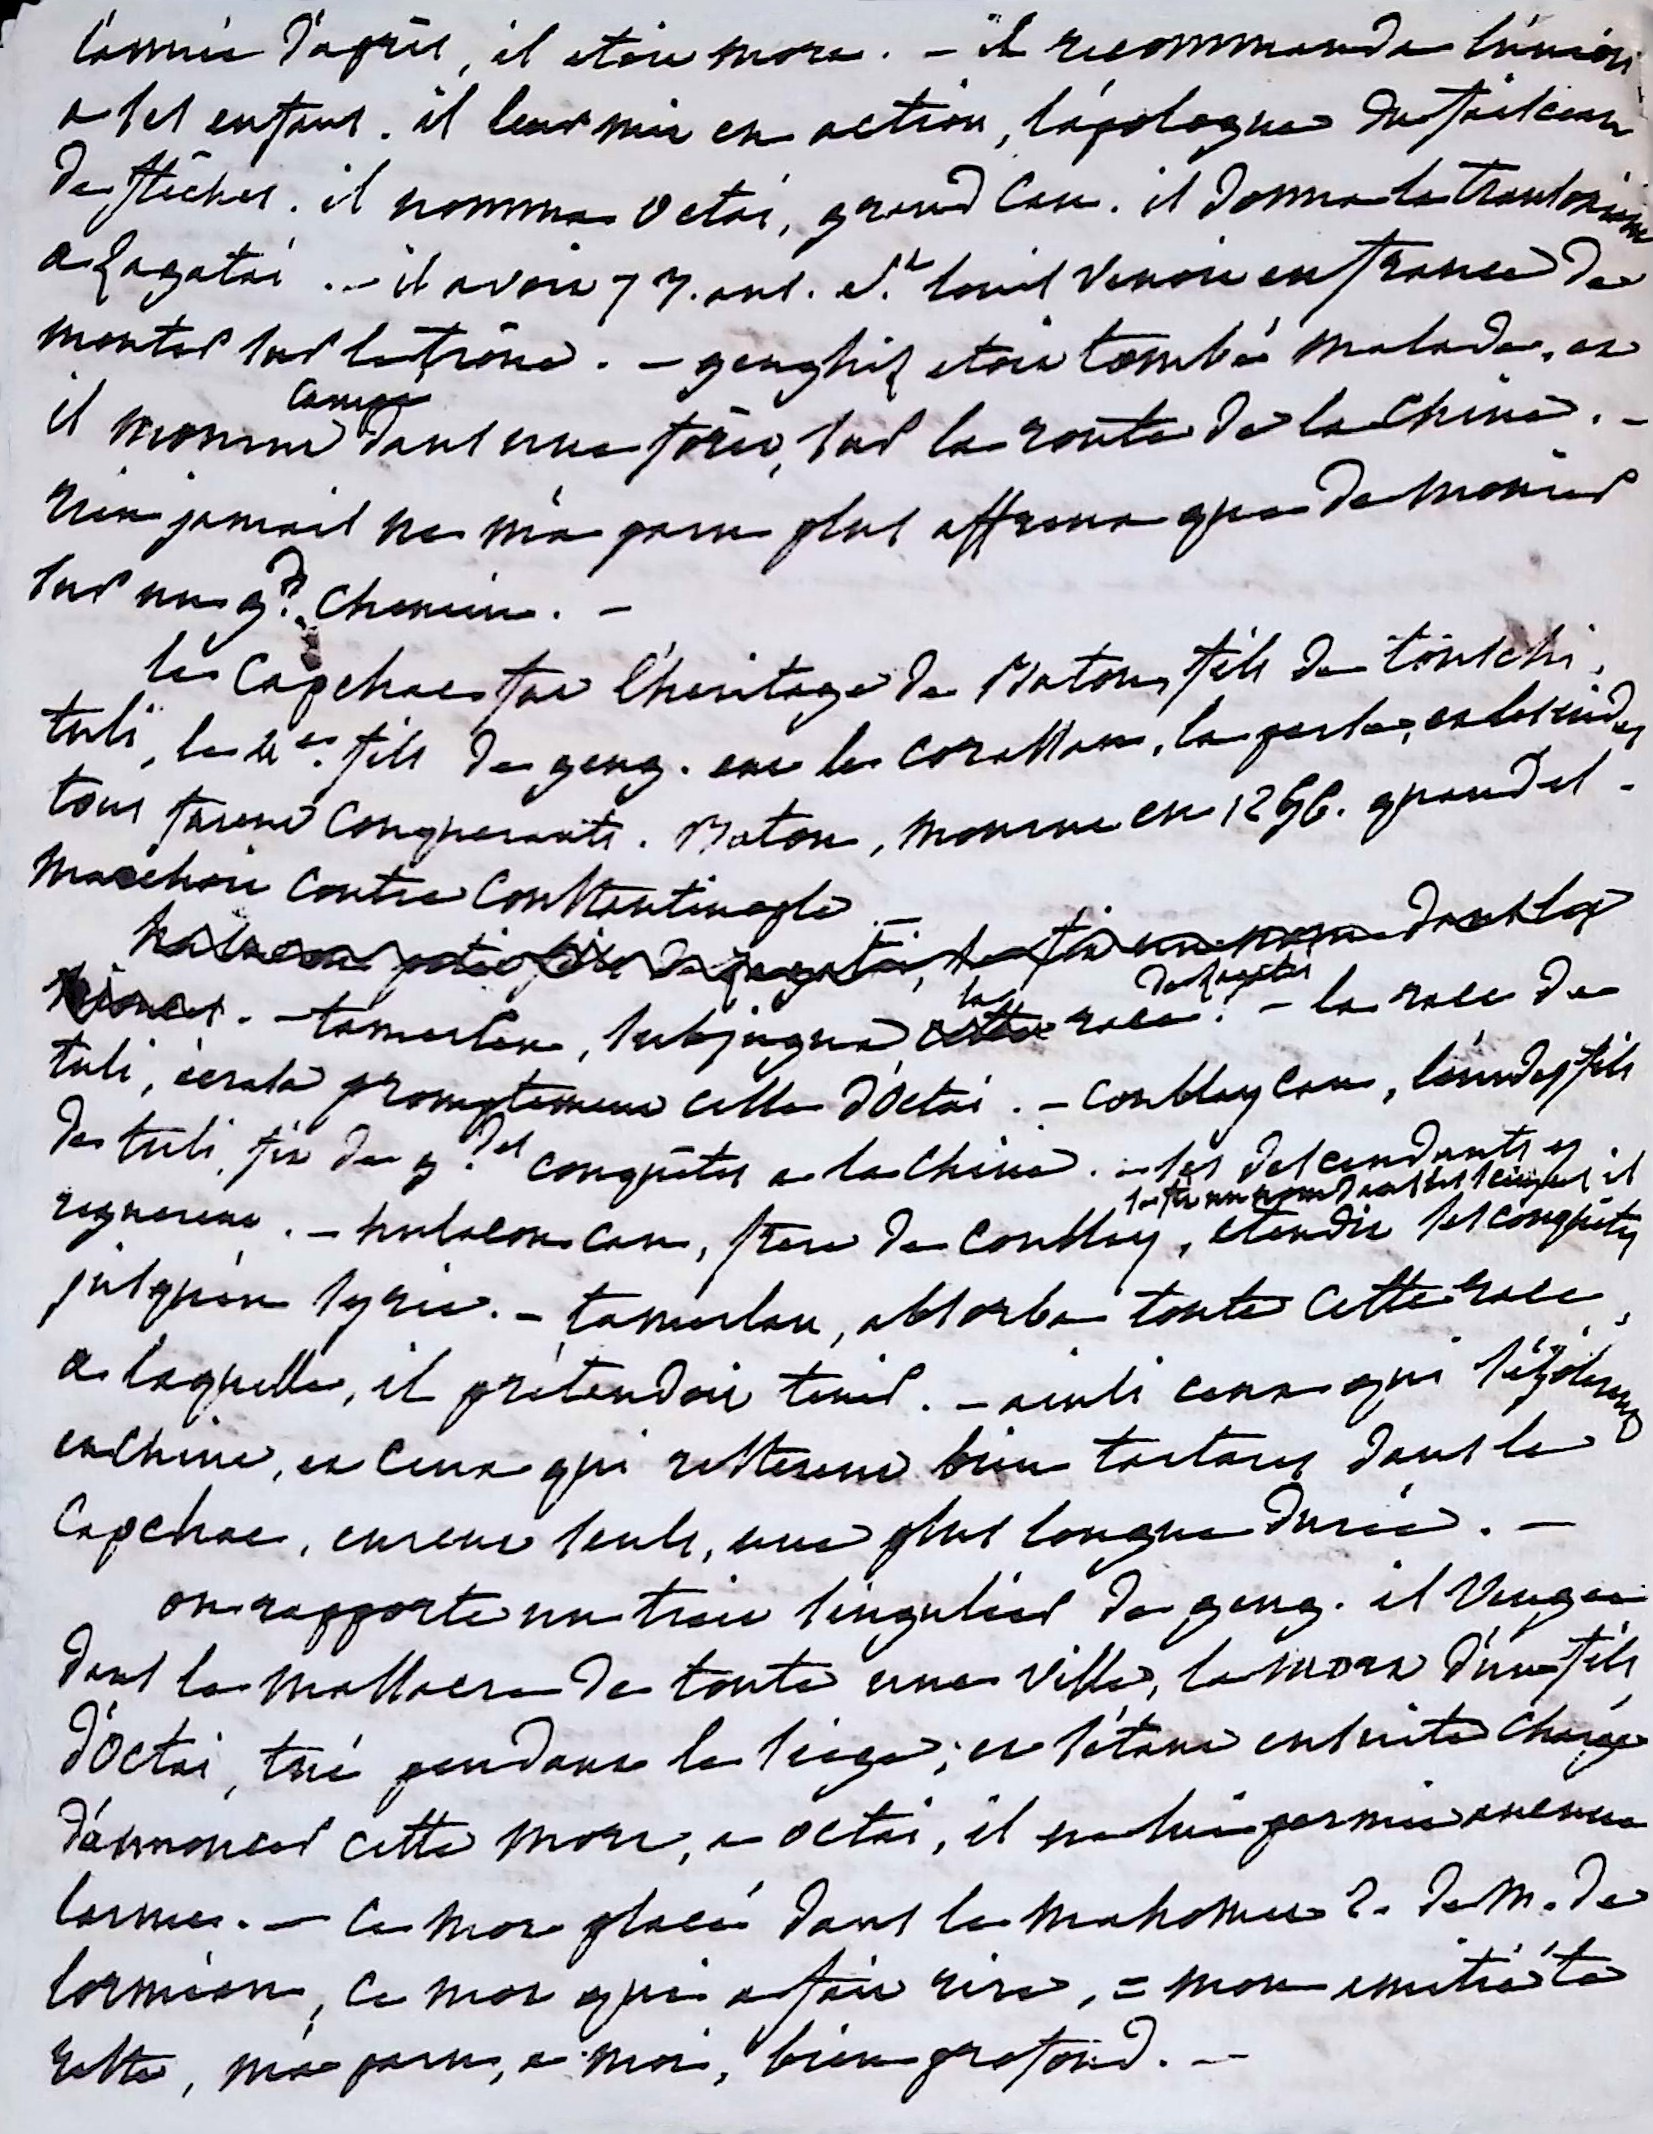 l'année d'après, il etoit mort. - il recommanda l'union
a ses enfans. il leur mit en action, l'apologue du faisceau
de flêches. il nomma Octai, grand Can. il donna la transoxiane
a Zagatai. - il avoit 73. ans. St. louis venoit en france de
monter sur le trône. - genghiz etoit tombé malade, et
il mourut campé dans une forêt, sur la route de la Chine. -
rien jamais ne m'a paru plus affreux que de mourir
sur un gd. chemin. -
le Capchac fut l'heritage de Batou, fils de toutchi,
tuli, le 4e. fils de geng. eut le corassan, la perse, et les indes
tous furent conquerants. Batou, mourut en 1256. quand il
marchoit contre Constantinople. -
tamerlan, subjugua la race de Zagatai. - la race de
tuli, écrasa promptement celle d'Octai. - coublay can, l'un des fils
de tuli, fit de gdes conquêtes a la chine. - ses descendants y
regnerent. - hulacou can, frere de coublay, se fit un nom dans les sciences, il etendit ses conquêtes
jusqu'en syrie. - tamerlan, absorba toute cette race,
a laquelle, il prétendoit tenir. - ainsi ceux qui s'isolerent
en chine, et ceux qui resterent bien tartares dans le
Capchac, eurent seuls, une plus longue durée. -
on rapporte un trait singulier de geng. il vengea
dans le massacre de toute une ville, la mort d'un fils
d'Octai, tué pendant le siege; et s'étant ensuite chargé
d'annoncer cette mort, a octai, il ne lui permit aucune
larme. - ce mot placé dans le mahomet 2. de M. de
lormian, ce mot qui a fait rire, = mon amitié te
reste, m'a paru, a moi, bien profond. -